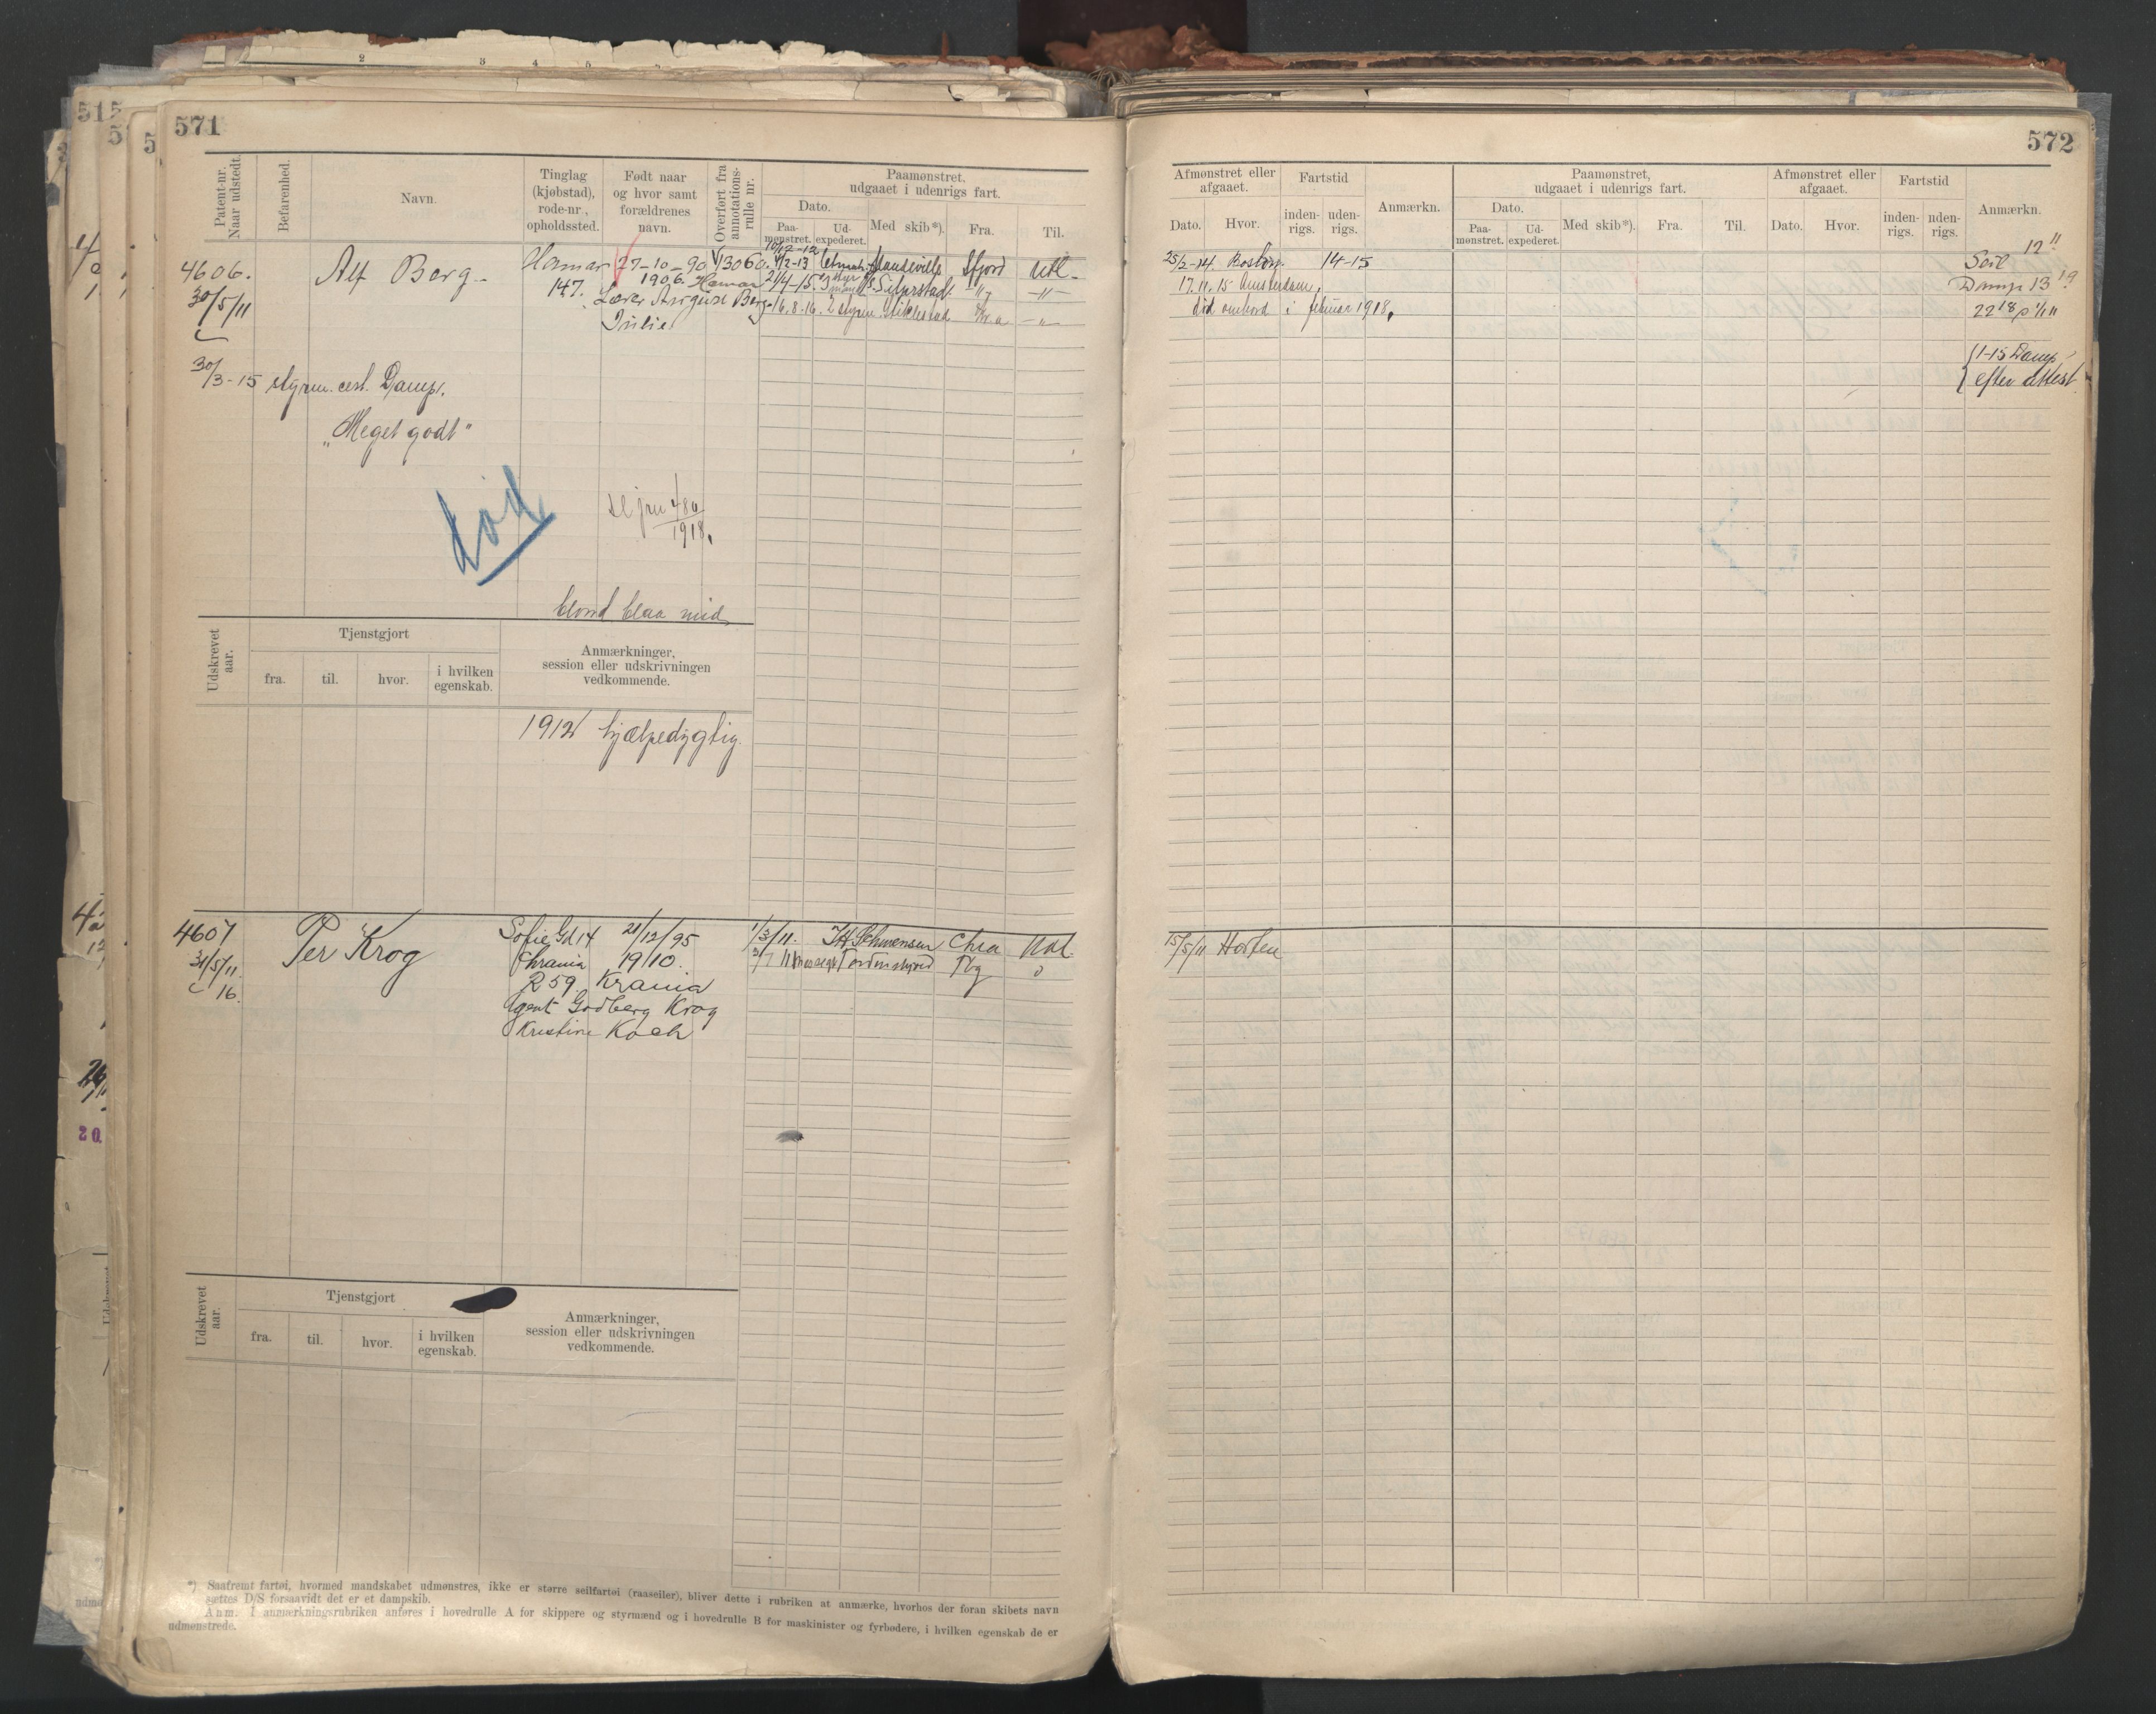 571
Patent-nr.
Naar udstedt.
Befarenhed.
Navn.
Tinglag
(kjøbstad),
rode-nr.,
opholdssted.
Født naar
og hvor samt
forældrenes
navn.
Overført fra
annotations-
rulle nr.
Paamønstret,
udgaaet i udenrigs fart.
Dato.
Paa-
mønstret.
Ud-
expederet.
Med skib*).
Fra.
Til.
4606.
30/5/11
Alf Berg
Hamar
147.
27-10-90
1906. Hamar
Lærer August Berg
Julie
13060.
10/12-12
4/2-13
Mandeville Sfjord Utl.
21/4-15.
-"- -"-
16.8.16. 2 styrm. Stiklestad Kr.a -"-
30/3-15 styrm. cert. Damp.
"Meget godt"
død
486
1918.
blond blaa mid.
Udskrevet
aar.
Tjenstgjort
fra.
til.
hvor.
i hvilken
egenskab.
Anmærkninger,
session eller udskrivningen
vedkommende.
1912 hjælpedygtig.
4607
31/5/11.
16.
Per Krog
Sofie Gd 14
Chrania
R 59.
21/12/95
19/10.
Krania
Agent Godberg Krog
Kristine Koch
1/3/11.
Chra
Tordenskjold Tbg
Udskrevet
aar.
Tjenstgjort
fra.
til.
hvor.
i hvilken
egenskab.
Anmærkninger,
session eller udskrivningen
vedkommende.
*) Saafremt fartøi, hvormed mandskabet udmønstres, ikke er større seilfartøi (raaseiler), bliver dette i rubriken at anmærke, hvorhos der foran skibets navn
sættes D/S forsaavidt det er et dampskib.
Anm. I anmærkningsrubriken anføres i hovedrulle A for skippere og styrmænd og i hovedrulle B for maskinister og fyrbødere, i hvilken egenskab de er
udmønstrede.
572
Afmønstret eller
afgaaet.
Dato.
Hvor.
Fartstid
inden-
rigs.
uden-
rigs.
Anmærkn.
Paamønstret,
udgaaet i udenrigs fart.
Dato.
Paa-
mønstret.
Ud-
expederet.
Med skib*).
Fra.
Til.
Afmønstret eller
afgaaet.
Dato.
Hvor.
Fartstid
inden-
rigs.
uden-
rigs.
Anmærkn.
25/2-14. Boston. 14-15
17.11.15 Amsterdam.
død ombord i februar 1918.
Seil 12
Damp 13
1-15 Damp
efter attest.
15/5/11 Horten